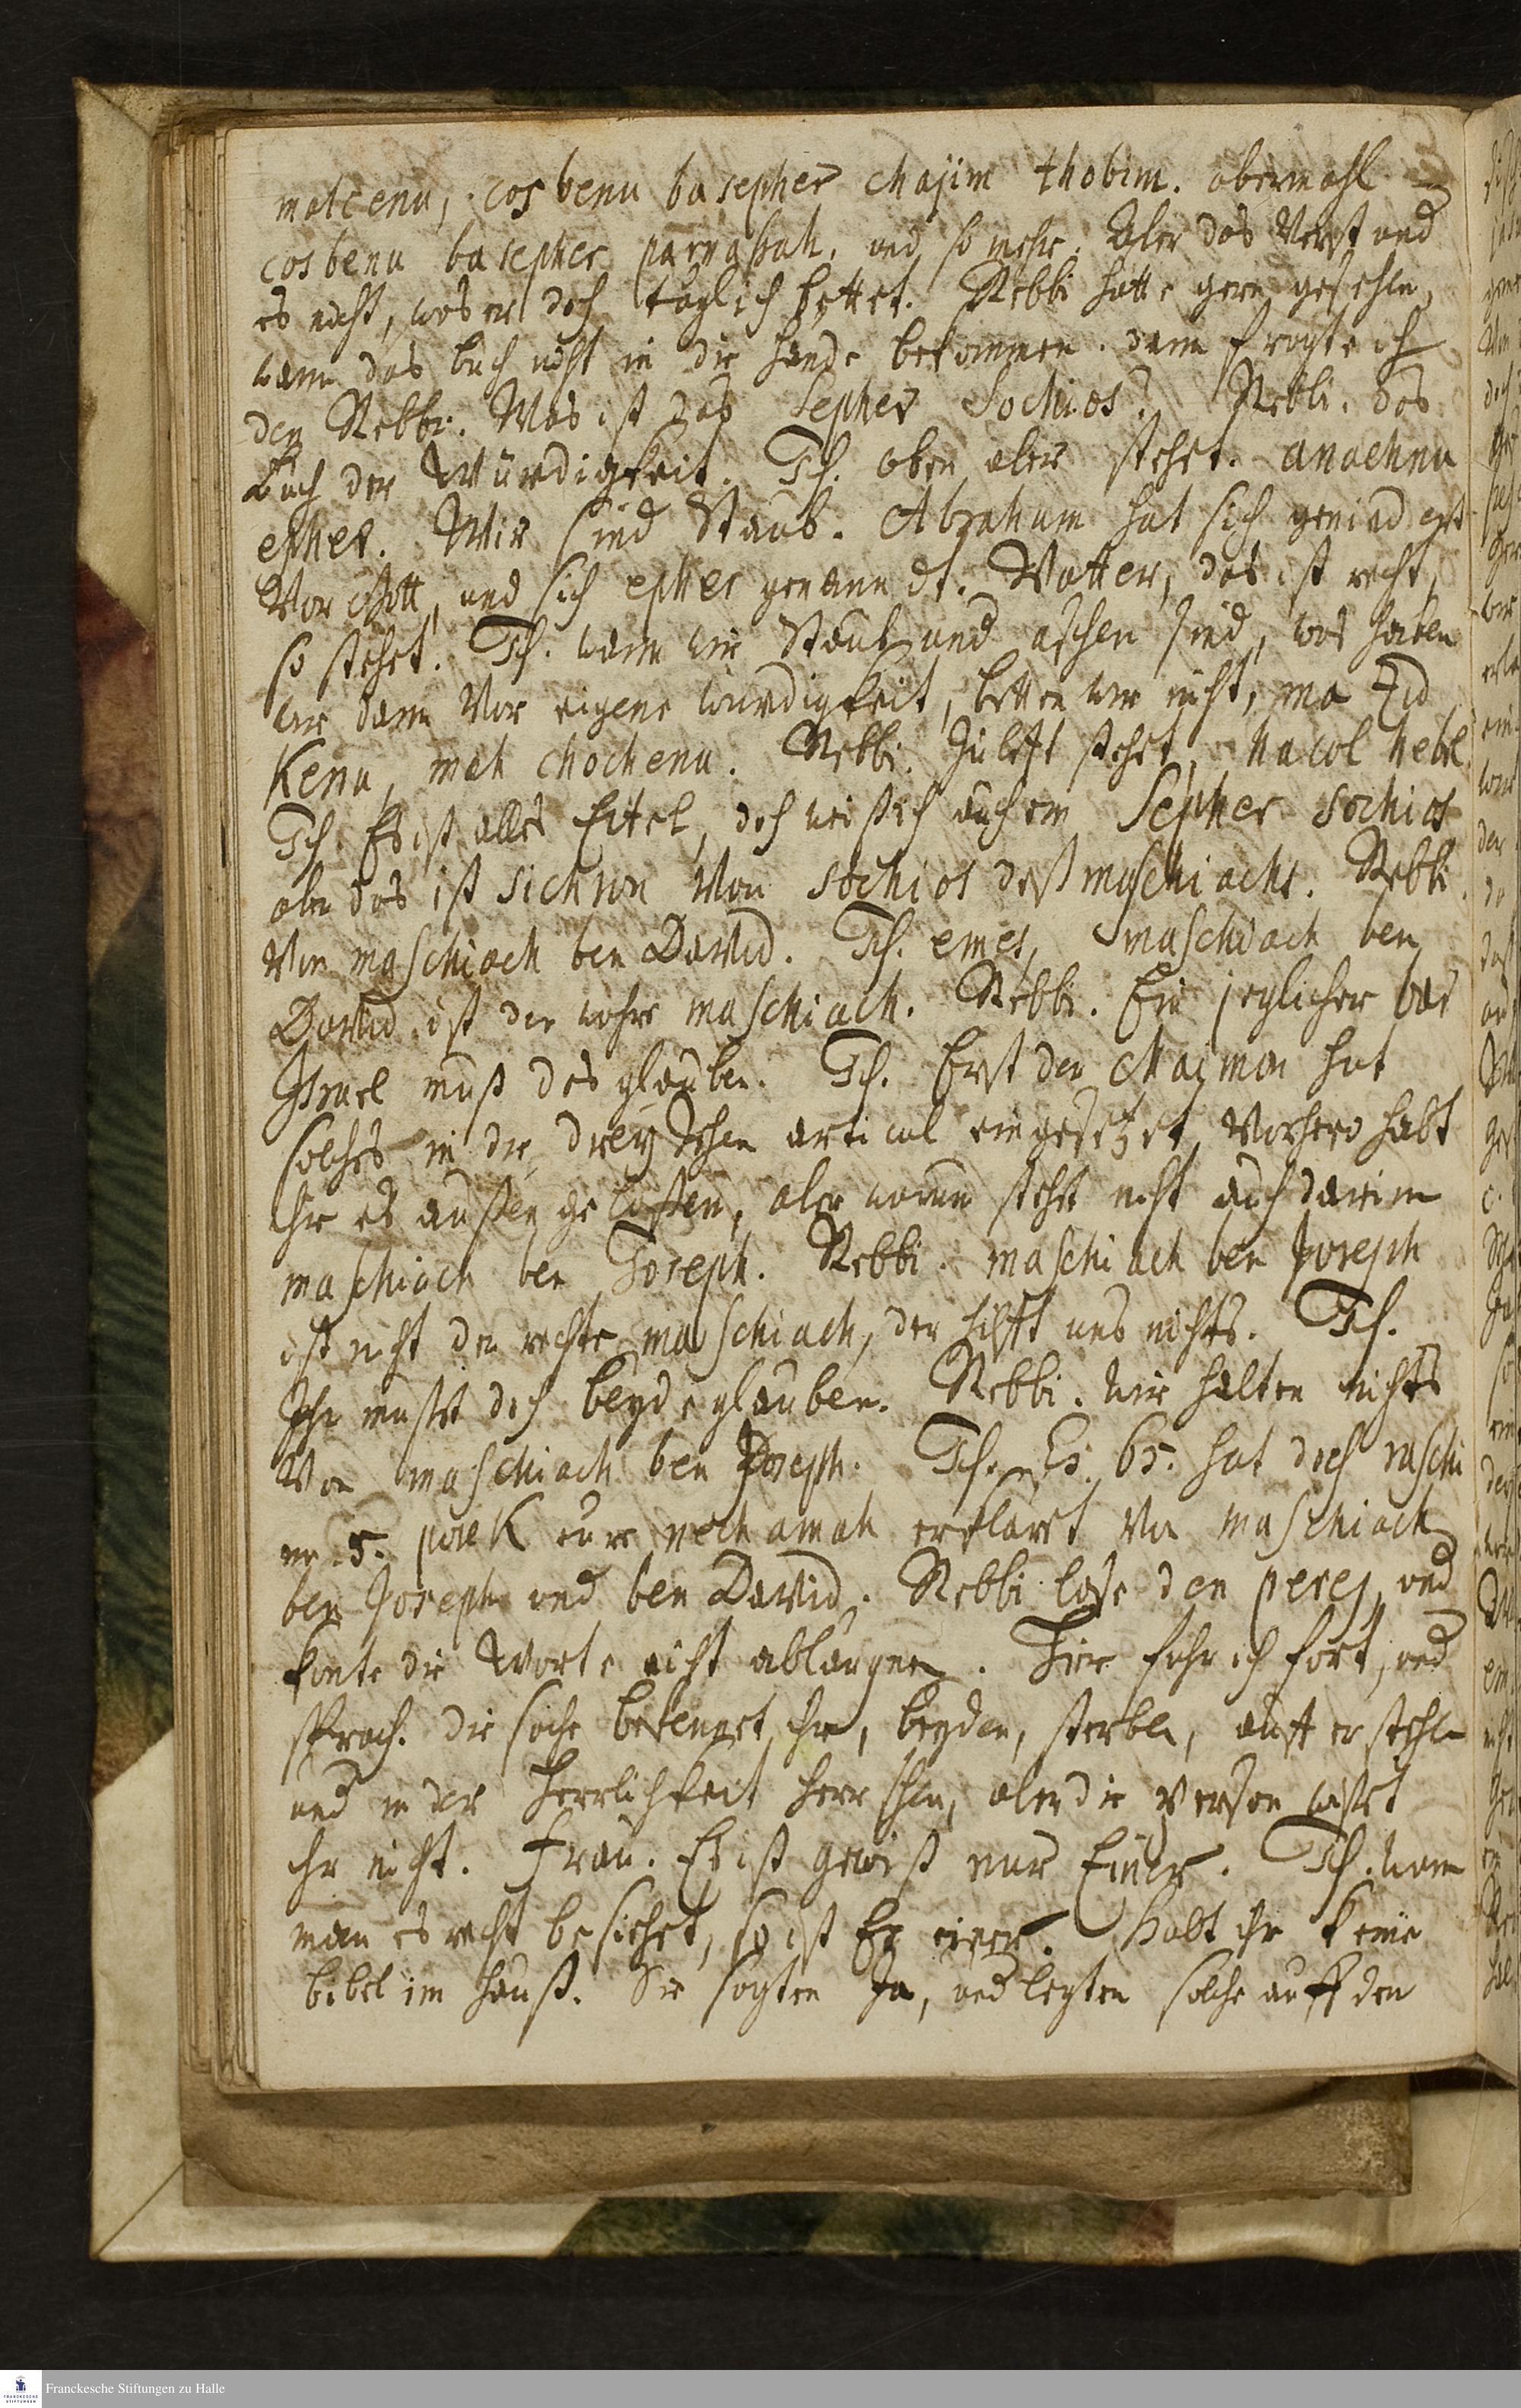 malcenu, cosbenu basepher chajim thobim. abermahl
cosbenu basepher parnassah. und so mehr. Aber das Verstand
es nicht, was er doch täglich bettet. Rebbi hatte gern gesehen,
wann das buch nicht in die hände bekommen. dann fragte ich
den Rebbi. Was ist das Sepher Sochios? Rebbi. das
buch der Würdigkeit. Ich. oben aber stehet. anachnu
epher. Wir sind Staub. Abraham hat sich geniedrigt
Vor Gott, und sich epher genanndt. Vatter, das ist recht,
so stehet. Ich. wann wir Staub und aschen sind, was haben
wir dann Vor eigene würdigkeit, betten wir nicht, ma Zid
kenu, mah chochenu. Rebbi. Zuletzt stehet, hacol hebel.
Ich. Es ist alles Eitel, doch weiß ich auch ein Sepher sochios
aber das ist sichron Von sochios deß maschiachs. Rebbi.
Von maschiach ben David. Ich. emes, maschiach ben
David ist der wahre maschiach. Rebbi. Ein jeglicher bar
Israel muß das glauben. Ich. Erst der Majmon hat
solches in die dreyzehen articul eingesetzet, Vorhero habt
ihr es außen gelaßen, aber warum stehet nicht auch darinn
maschiach ben Joseph. Rebbi. maschiach ben Joseph
ist nicht der rechte maschiach, der hilfft uns nichts. Ich.
Ihr mußet doch beyde glauben. Rebbi. wir halten nichts
Von maschiach ben Joseph. Ich. Es. 65. hat doch raschi
im 5. perek eure nechamah erklärt Von maschiach
ben Joseph und ben David. Rebbi lase den peres, und
konte die Worte nicht abläugnen. Hier fuhr ich fort, und
sprach. die sache bekennet ihr, leyden, sterben, aufferstehen
und in der Herrlichkeit herrschen, aber die person wißet
ihr nicht. Frau. Es ist gewiß nur Einer. Ich. wann
man es recht besiehet, so ist Er einer. Habt ihr keine
bibel im hauß. Sie sagten Ja, und legten solche auff den
Franckesche Stiftungen zu Halle